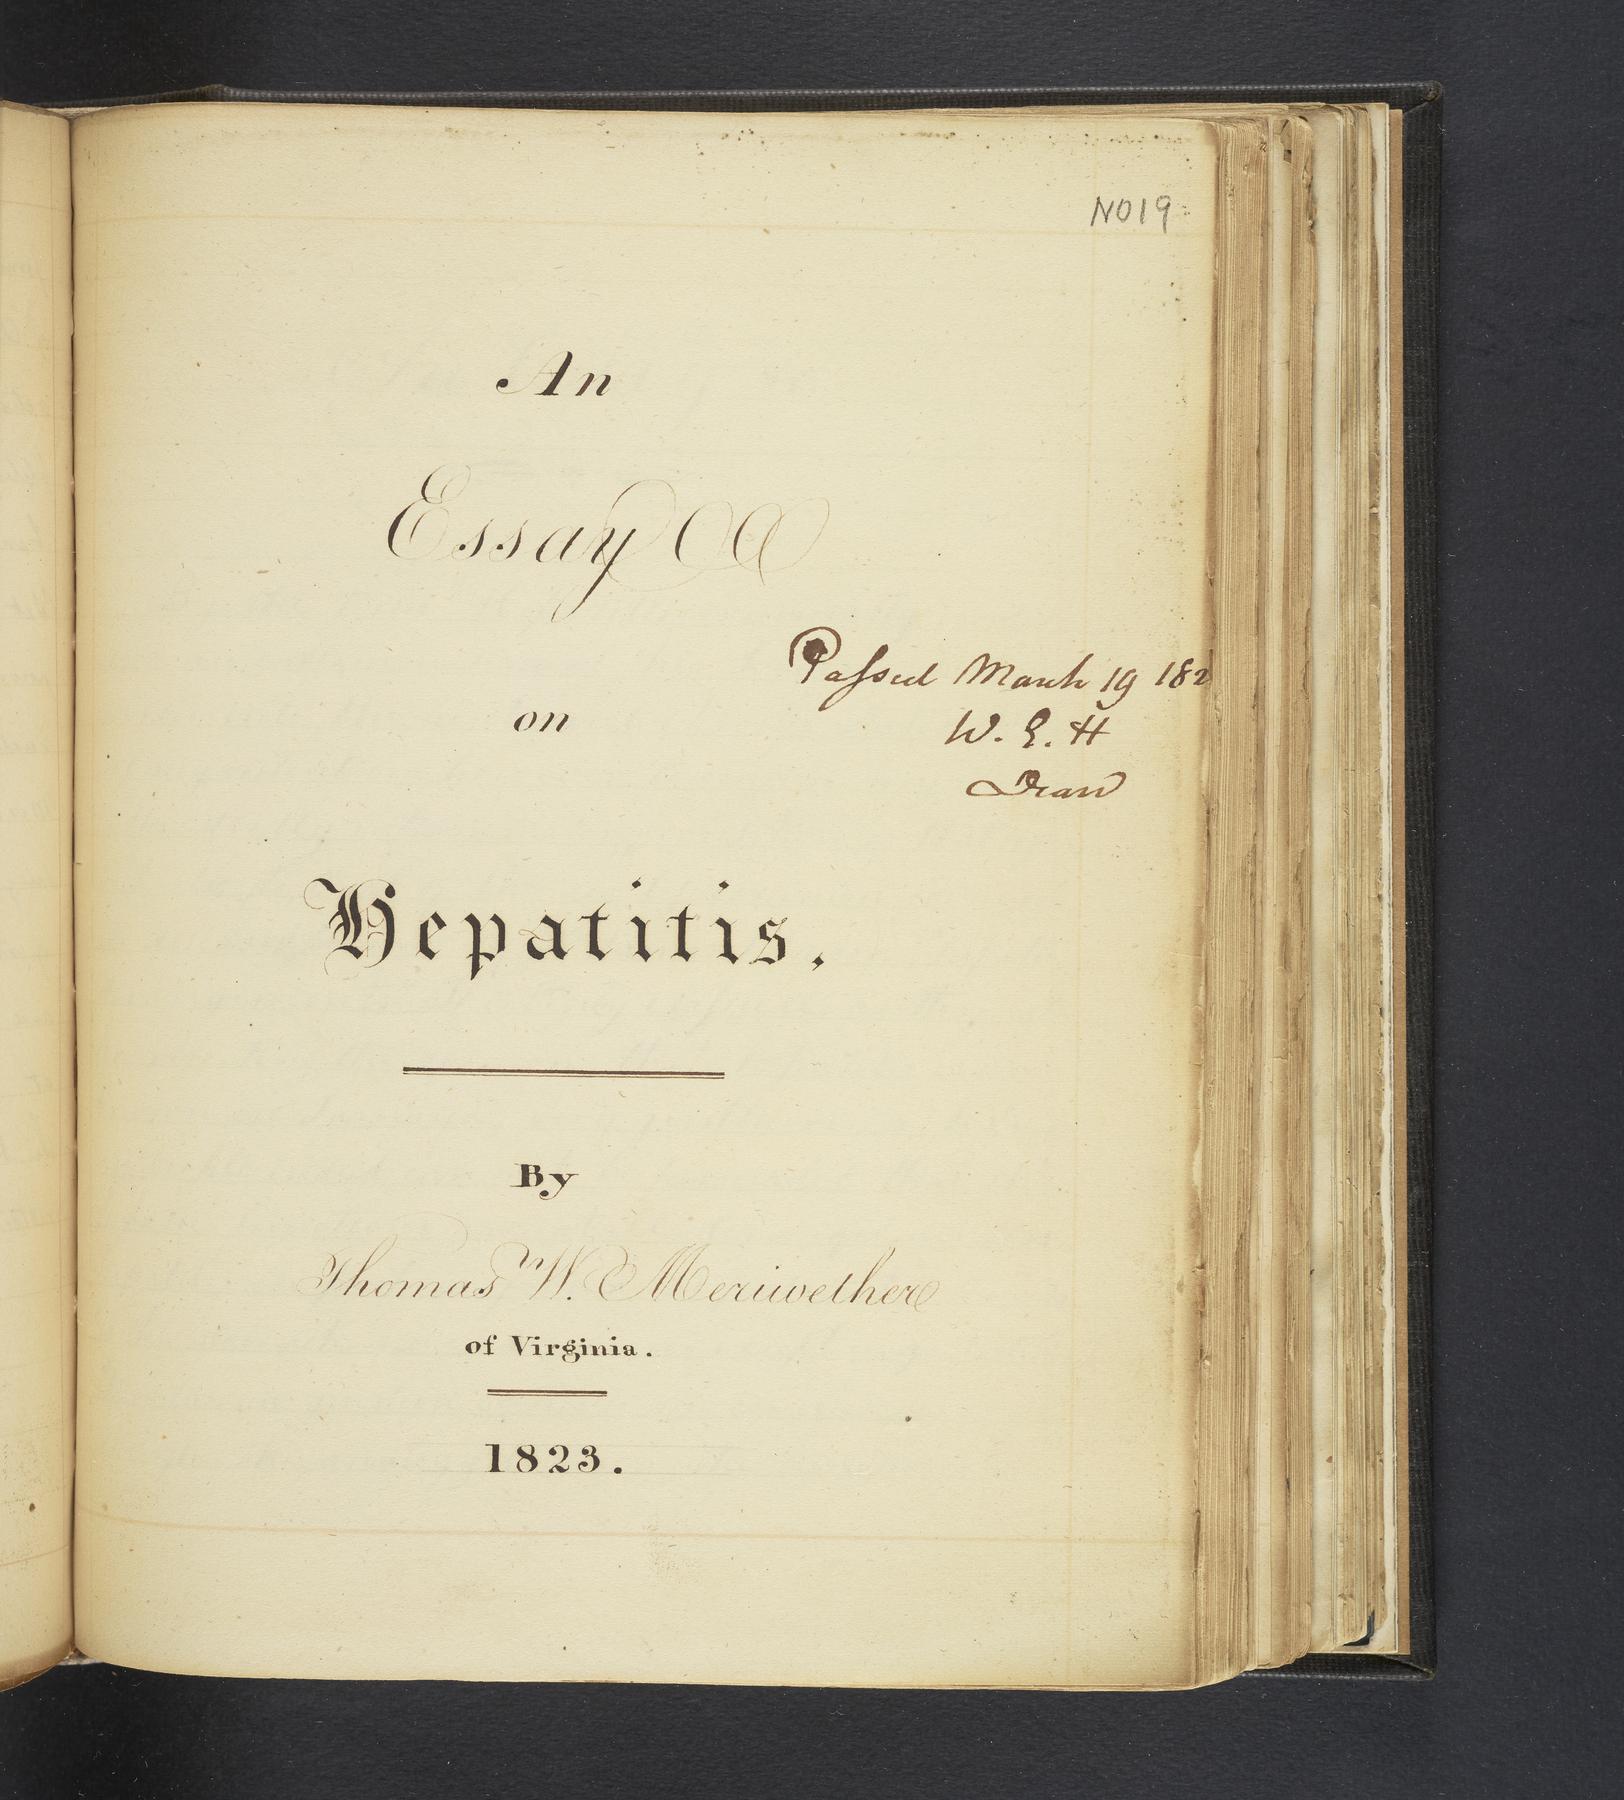 NO19
An
Essay
on
Passed March 19 182
W. E. H
Dean
Hepatitis.
By
Thomas W. Meriwether
of Virginia.
1823.